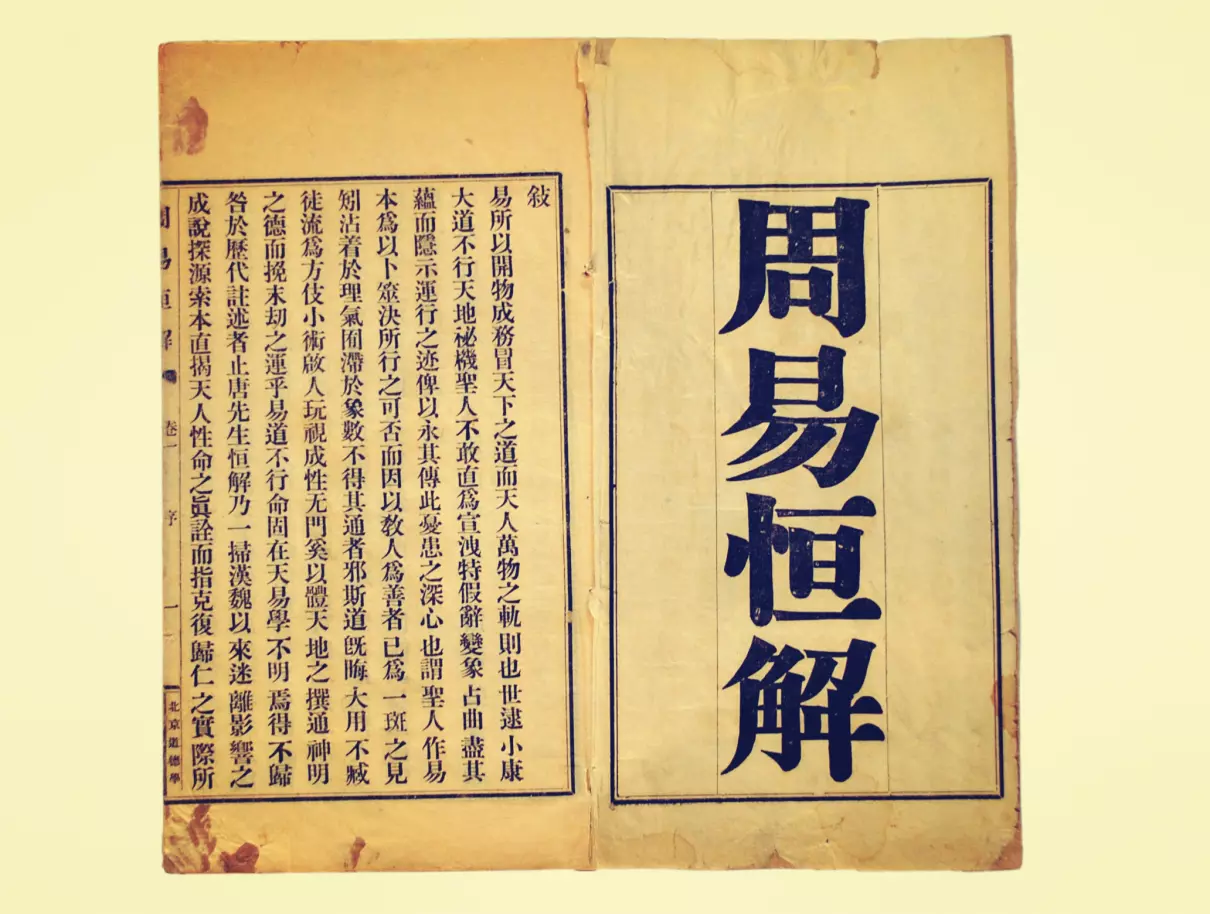 周易恒解
敍
易所以開物成務冒天下之道而天人萬物之軌則也世逮小康
大道不行天地祕機聖人不敢直爲宣洩特假辭變象占曲盡其
蘊而隱示運行之迹俾以永其傳此憂患之深心也謂聖人作易
本爲以卜筮決所行之可否而因以敎人爲善者已爲一斑之見
矧沾着於理氣囿滯於象數不得其通者邪斯道旣晦大用不臧
徒流爲方伎小術啟人玩視成性无門奚以體天地之撰通神明
之德而挽末刧之運乎易道不行命固在天易學不明焉得不歸
咎於歷代註述者止唐先生恒解乃一掃漢魏以來迷離影響之
成說探源索本直揭天人性命之眞詮而指克復歸仁之實際所
周易恒解 卷一 序 一 北京道德學